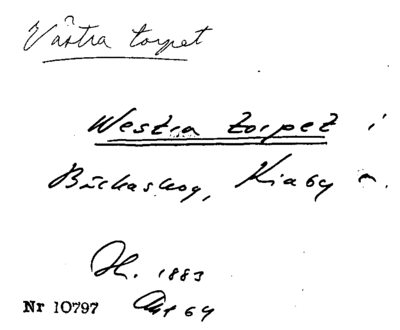 Västra torpet
Westra torpet i
Bäckaskog, Kiaby
1883
Nr 10797
64